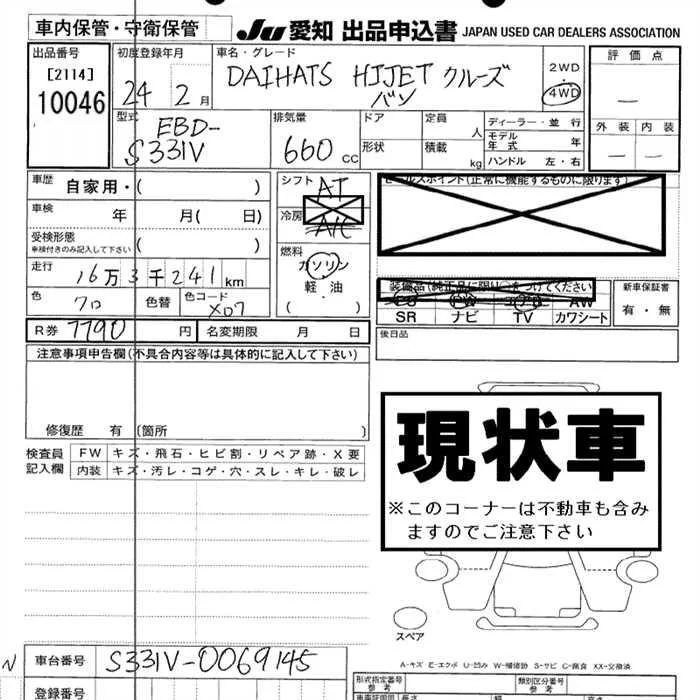 車内保管・守衛保管
Ju 愛知 出品申込書 JAPAN USED CAR DEALERS ASSOCIATION
出品番号
[2114]
10046
初度登録年月
24 2 月
車名・グレード
DAIHATS HIJET クルーズ
バン
2WD
・
4WD
評価点
—
外装 内装
— —
型式
EBD-
S331V
排気量
660 cc
ドア
定員
人
形状
積載
kg
ディーラー・並行
モデル年式
年
ハンドル 左・右
車歴
自家用・( )
車検
年 月( 日)
受検形態
車検付きのみ記入して下さい
( )
走行
16万3千241km
色
クロ
色替
色コード
X07
シフト
AT
冷房
A/C
燃料
ガソリン
軽・油
( )
セールスポイント(正常に機能するものに限ります)
装備品(純正品に限り○をつけてください)
AW
SR ナビ TV カワシート
新車保証書
有・無
R券 7790 円
名変期限 月 日
後日品
注意事項申告欄(不具合内容等は具体的に記入して下さい)
修復歴 有 〔箇所 〕
検査員
記入欄
FW キズ・飛石・ヒビ割・リペア跡・X要
内装 キズ・汚レ・コゲ・穴・スレ・キレ・破レ
現状車
※このコーナーは不動車も含み
ますのでご注意下さい
スペア
A-キズ E-エクボ U-凹み W-補修跡 S-サビ C-腐食 XX-交換済
N
車台番号 S331V-0069145
登録番号
形式指定番号
参考
類別区分番号
参考